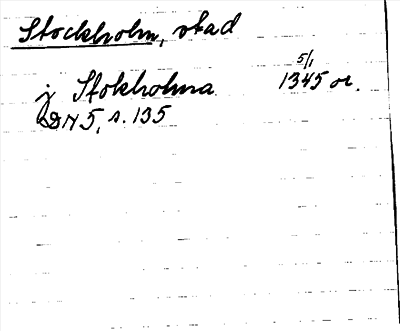 Stockholm, stad
j Stokholma 5/1 1345 or.
DN 5, s. 135